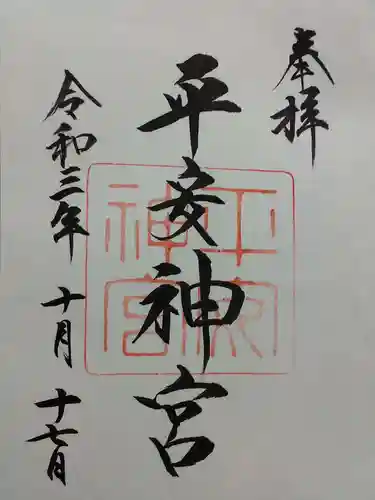 奉拝
平安神宮
平安神宮
令和三年十月十七月